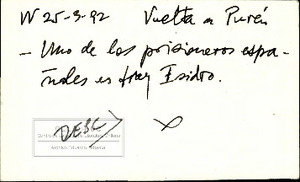 W 25-3-92 Vuelta a Purén
- Uno de los prisioneros espa-
ñoles es fray Isidro.
DESC